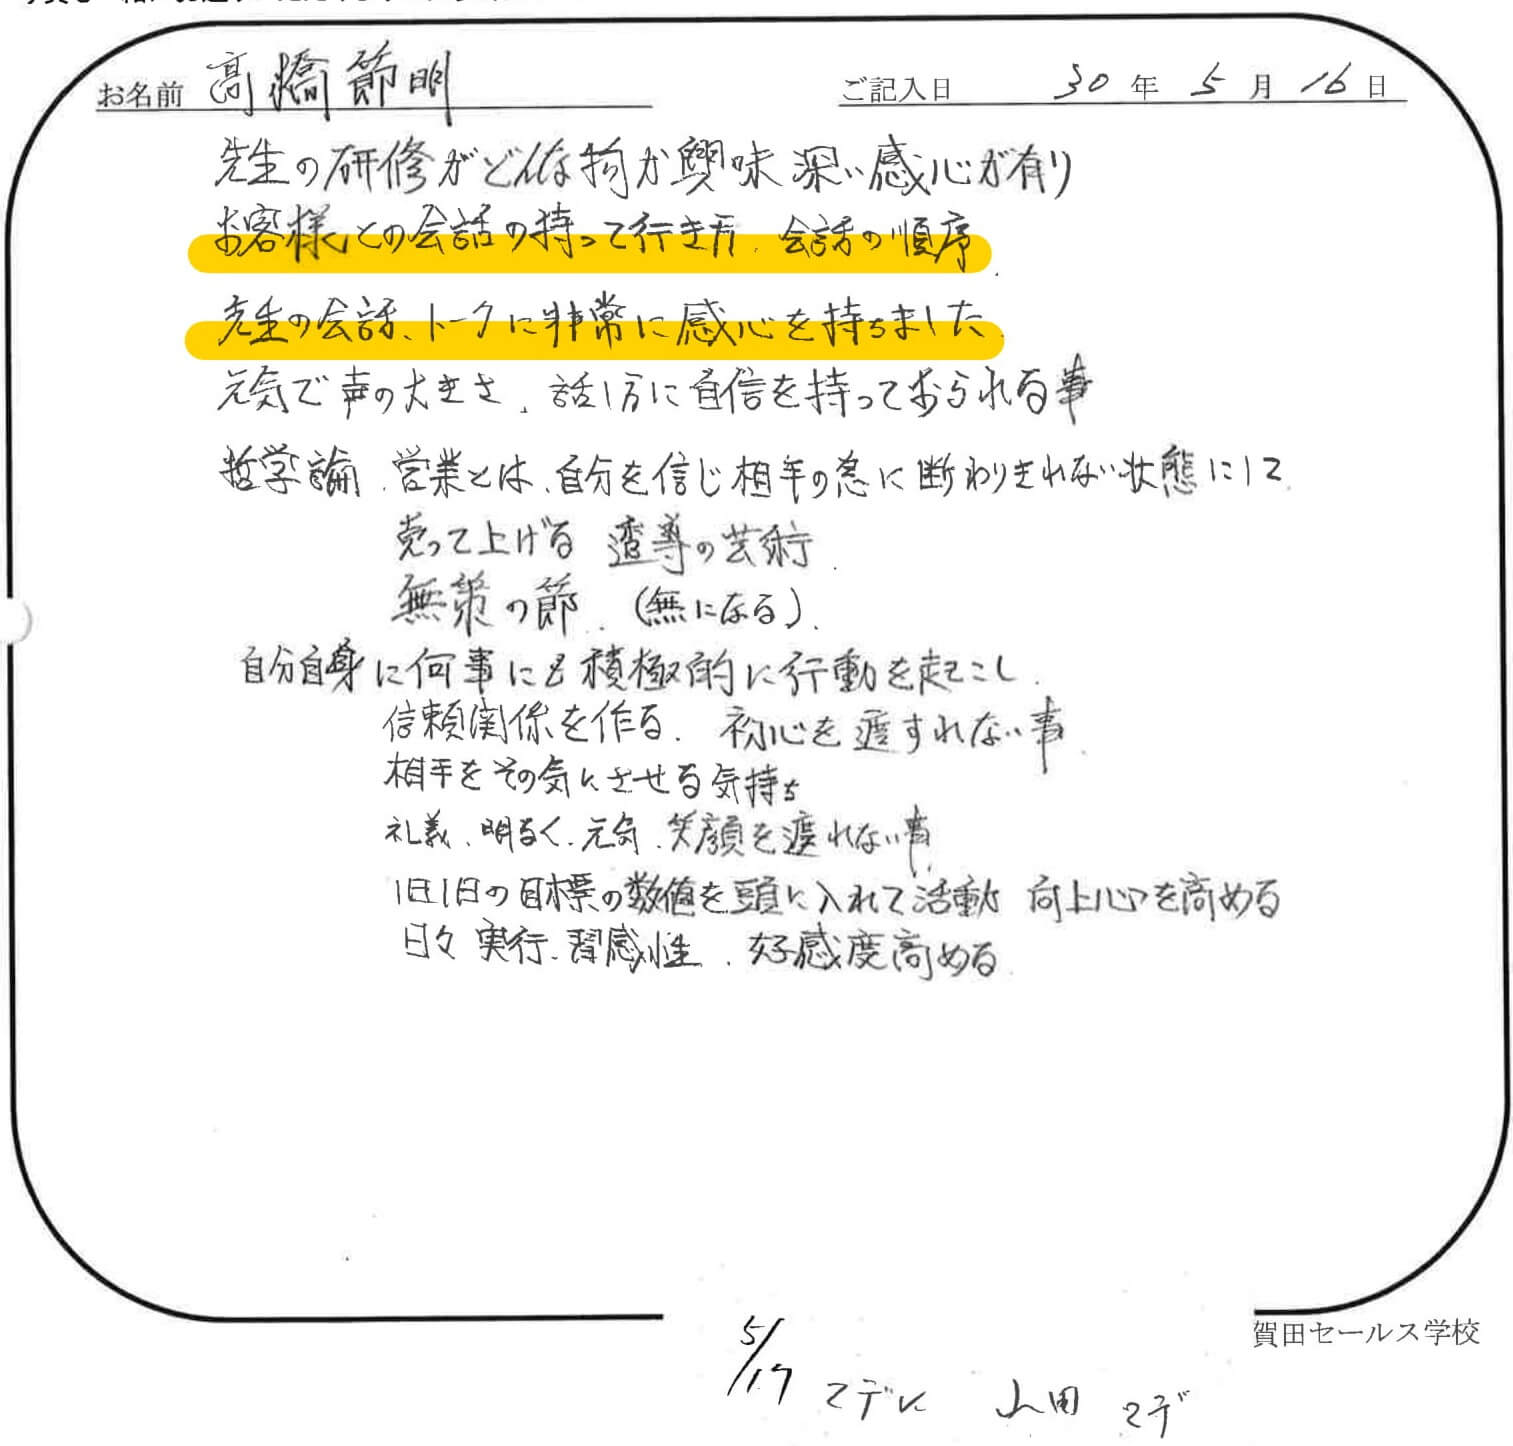 お名前 高橋節明 ご記入日 30年5月16日
先生の研修がどんな物か興味深い感心が有り
お客様との会話の持って行き方、会話の順序
先生の会話、トークに非常に感心を持ちました。
元気で声の大きさ、話し方に自信を持っておられる事
哲学論、営業とは、自分を信じ相手の為に断わりきれない状態にして
売って上げる 導の芸術
無策の節、(無になる)
自分自身に何事にも積極的に行動を起こし
信頼関係を作る、初心を すれない事
相手をその気にさせる気持ち
礼義、明るく、元気、笑顔を れない事
1日1日の目標の数値を頭に入れて活動 向上心を高める
日々実行、習感性、好感度高める
賀田セールス学校
5/17 マデに 山田 マデ